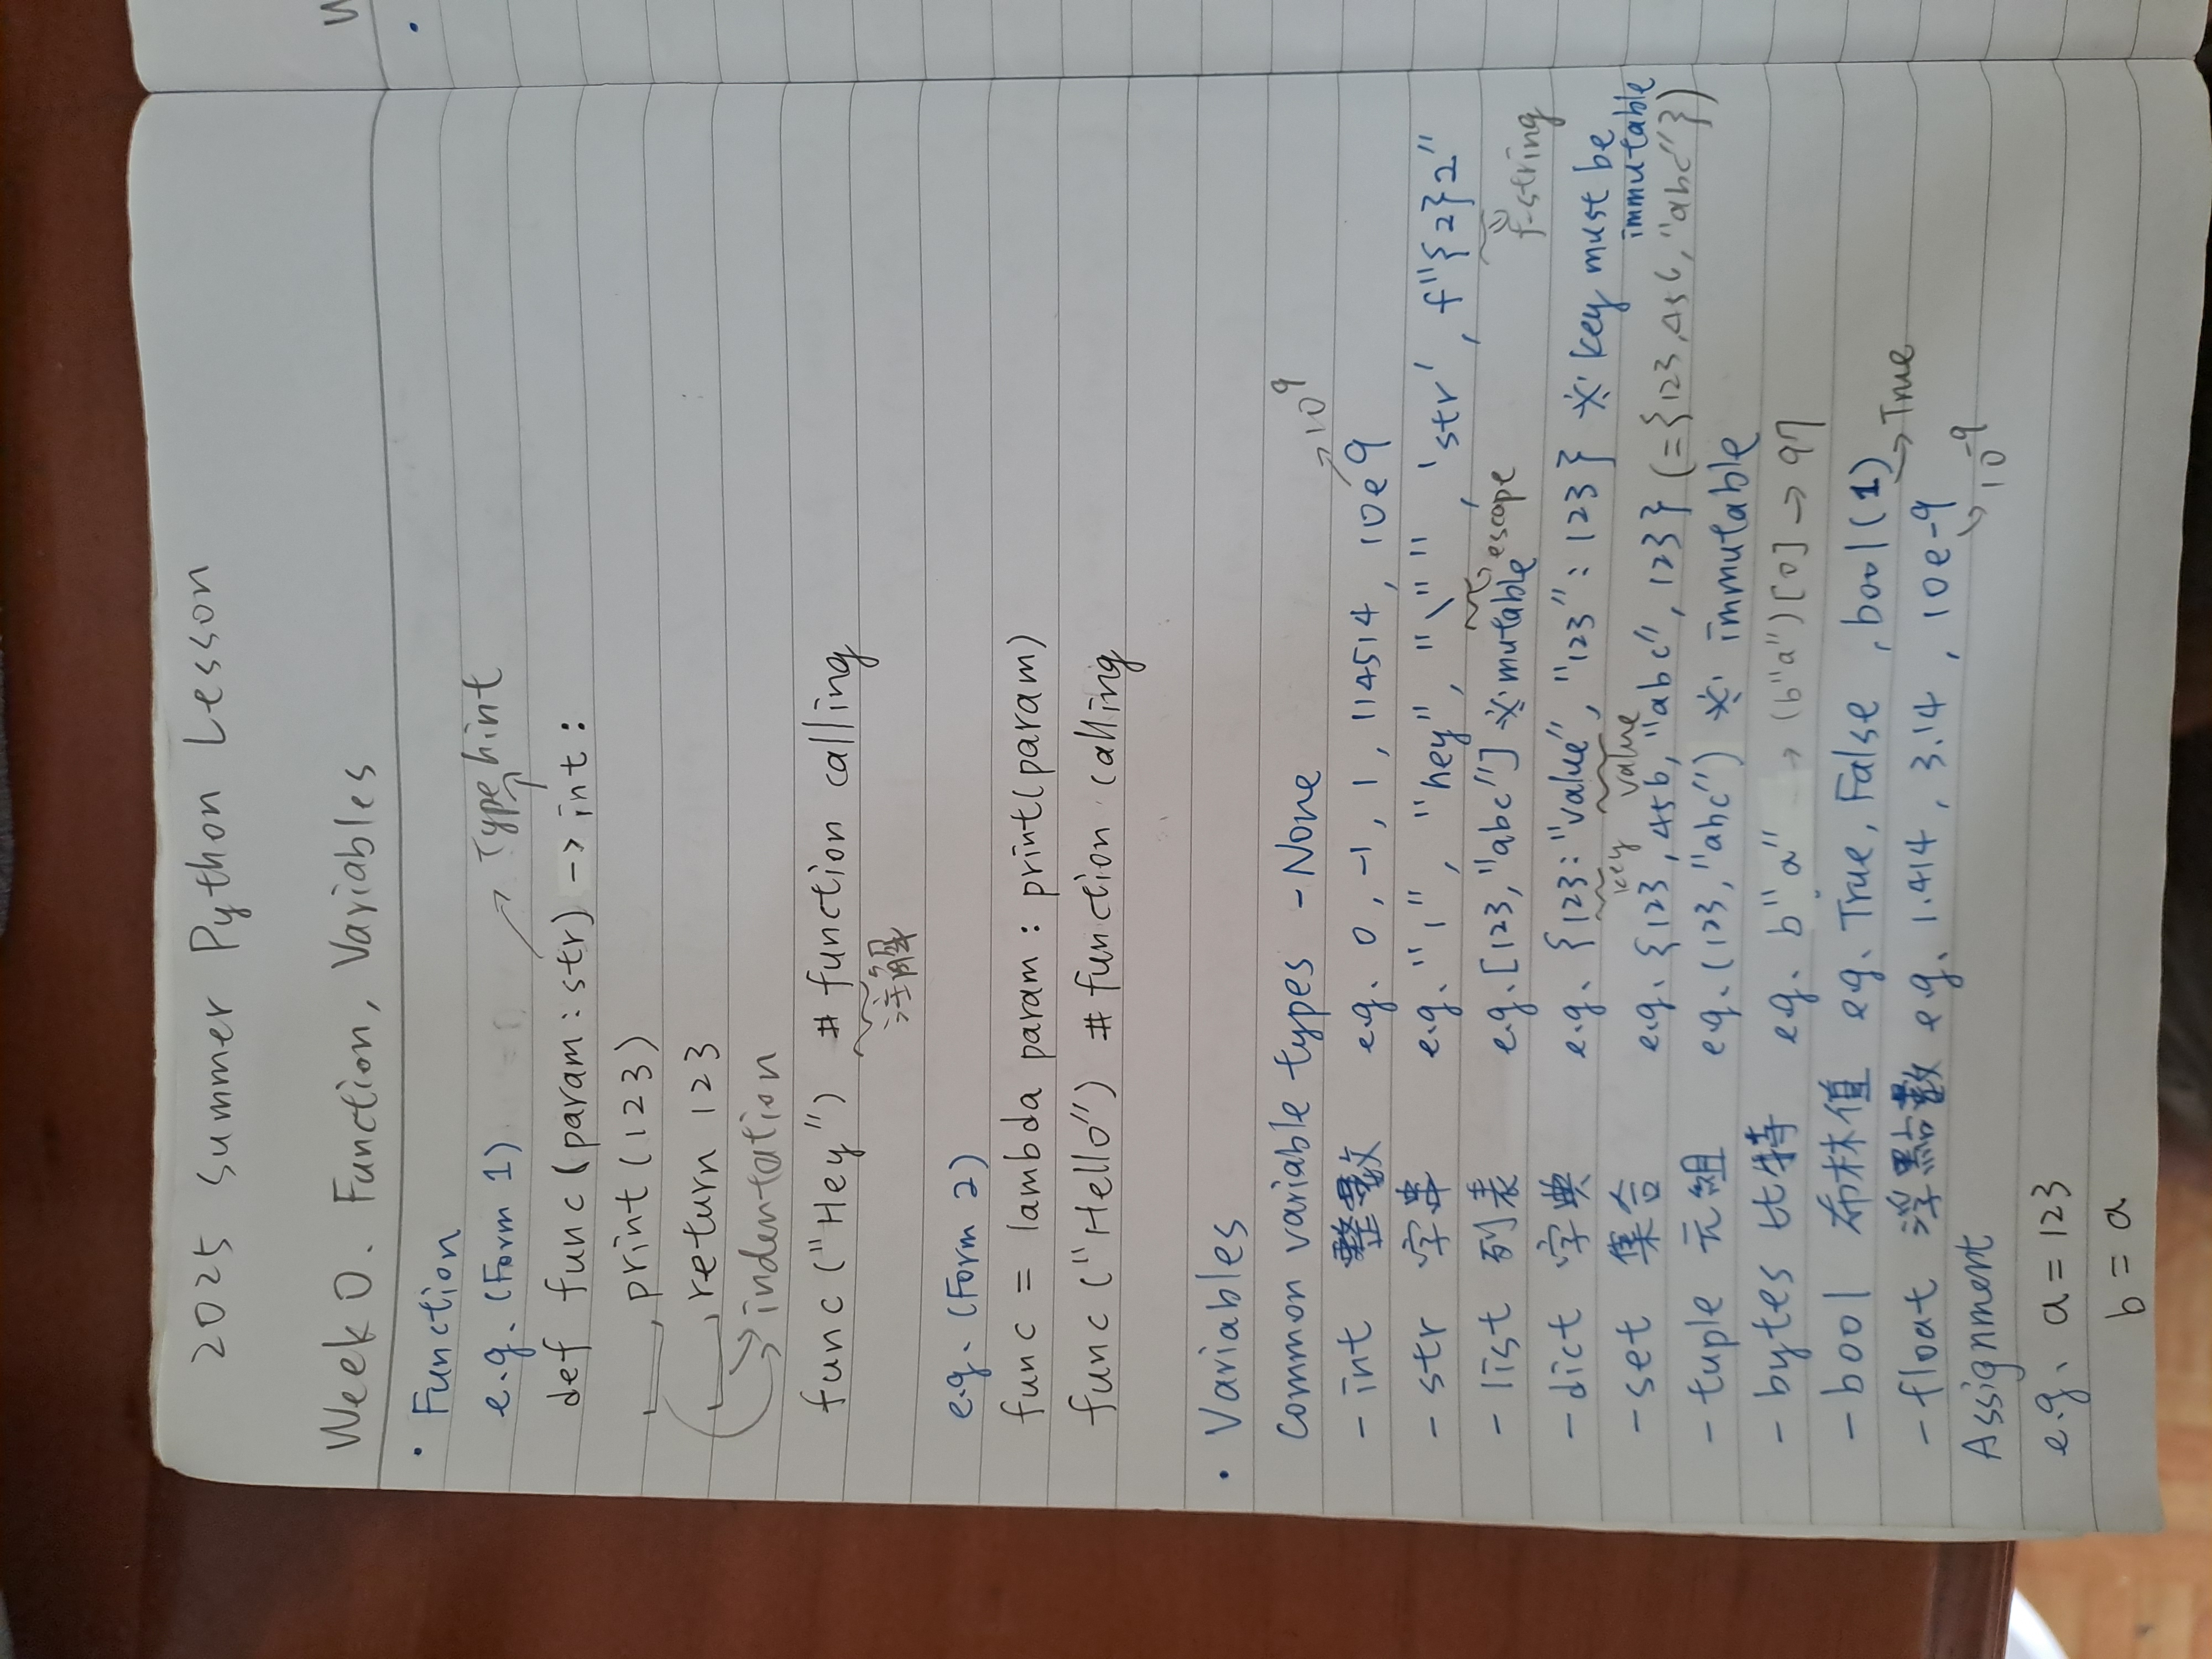 2025 Summer Python Lesson
Week 0. Function, Variables
• Function
e.g. (Form 1)
Type hint
def func (param : str) -> int :
print (123)
return 123
indentation
func ("Hey") # function calling
注解
e.g. (Form 2)
func = lambda param : print(param)
func ("Hello") # function calling
• Variables
Common variable types - None
→ 10⁹
- int 整數 e.g. 0, -1, 1, 114514, 10e9
- str 字串 e.g. "1", "hey", "\"", 'str', f"{2}2"
escape
f-string
- list 列表 e.g. [123, "abc"] ※ mutable
- dict 字典 e.g. {123: "value", "123": 123} ※ key must be immutable
key value
- set 集合 e.g. {123, 456, "abc", 123} (={123, 456, "abc"})
- tuple 元組 e.g. (123, "abc") ※ immutable
- bytes 比特 e.g. b"a" → (b"a")[0] → 97
- bool 布林值 e.g. True, False, bool(1)
→ True
- float 浮點數 e.g. 1.414, 3.14, 10e-9
→ 10⁻⁹
Assignment
e.g. a = 123
b = a